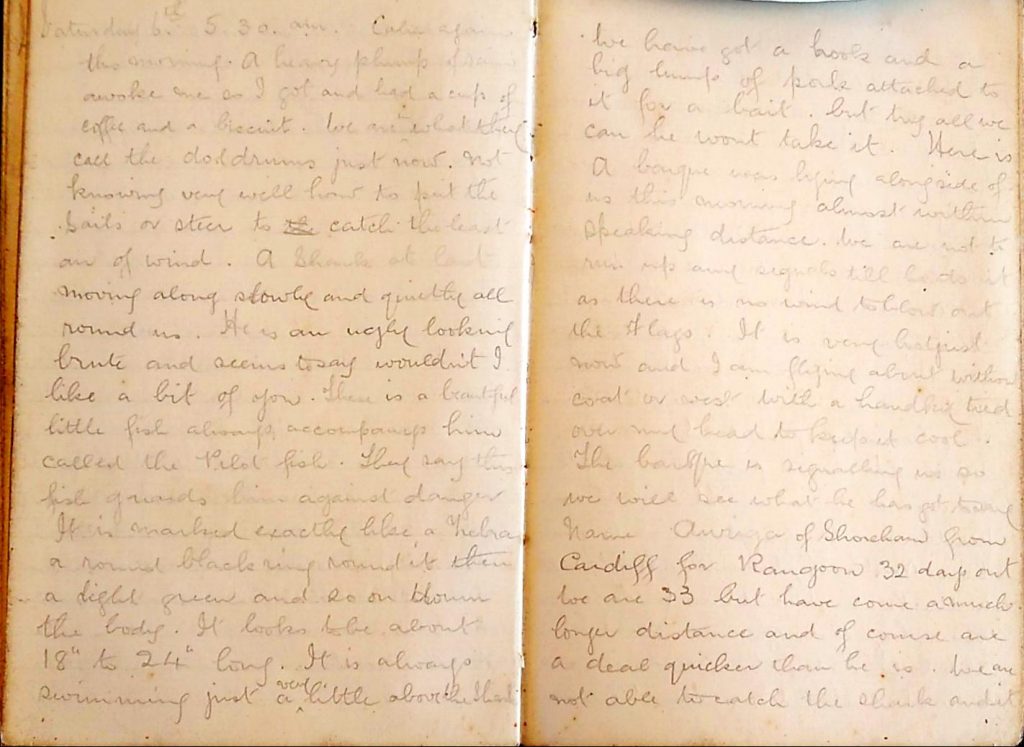 Saturday 6th 5.30. am. Calm again
this morning. A heavy plump of rain
awoke me so I got and had a cup of
coffee and a biscuit. We are in what they
call the doldrums just now. not
knowing very well how to put the
sails or steer to the catch the least
air of wind. A Shark at last
moving along slowly and quietly all
round us. He is an ugly looking
brute and seems to say wouldn't I
like a bit of you. There is a beautiful
little fish always accompanys him
called the Pilot fish. They say this
fish guards him against danger
It is marked exactly like a Zebra
a round black ring round it then
a light green and so on down
the body. It looks to be about
18" to 24" long. It is always
swimming just a very little above the Shark
We have got a hook and a
big lump of pork attached to
it for a bait. but try all we
can he wont take it. Here is
A barque was lying alongside of
us this morning almost within
speaking distance. We are not to
run up any signals till he does it
as there is no wind to blow out
the flags. It is very hot just
now and I am flying about without
coat or vest with a handkf tied
over my head to keep it cool.
The barque is signalling us so
we will see what he has got to say
Name Auriga of Shoreham from
Cardiff for Rangoon 32 days out
We are 33 but have come a much
longer distance and of course are
a deal quicker than he is. We are
not able to catch the shark and it